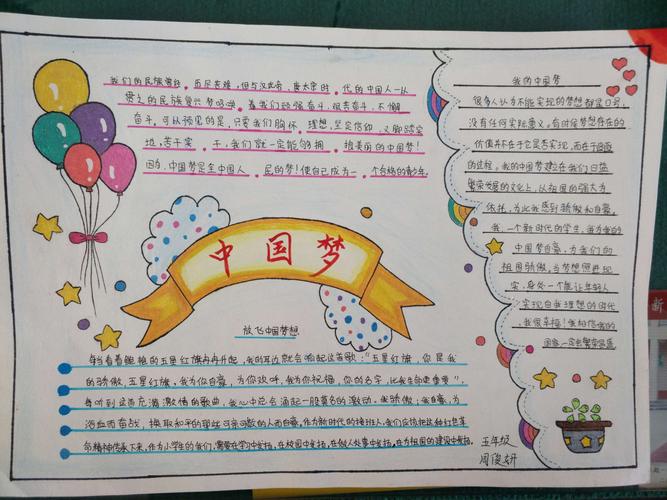 我们的民族曾经历尽苦难，但与汉武帝、唐太宗时代的中国人一从
贯之的民族复兴梦呼唤着我们顽强奋斗，艰苦奋斗，不懈
奋斗，可以预见的是，只要我们胸怀理想，坚定信仰，又脚踏实
地，苦干实干，我们就一定能够拥抱美丽的中国梦！
因为，中国梦是全中国人民的梦！使自己成为一个合格的青少年。
中国梦
放飞中国梦想
每当看着鲜艳的五星红旗冉冉升起，我的耳边就会响起这首歌：“五星红旗，你是我
的骄傲，五星红旗，我为你自豪，为你欢呼，我为你祝福，你的名字，比我生命更重要”，
每听到这首充满激情的歌曲，我心中总会涌起一股莫名的激动。我骄傲；我自豪，为
浴血而奋战，换取和平的那些可亲可敬的人而自豪，作为新时代的接班人，我们应该把这种红色革
命精神传承下来，作为小学生的我们，需要在学习中发扬，在校园中发扬，在做人处事中发扬，在为祖国的建设中发扬。
我的中国梦
很多人认为不能实现的梦想都是口号，
没有任何实际意义。有时候梦想存在的
价值并不在于它是否实现，而在于追逐
的过程，我的中国梦建立在我们日益
繁荣发展的文化上，以祖国的强大为
依托，为此我感到骄傲和自豪。
我，一个新时代的学生，我为我的
中国梦自豪，为我们的
祖国骄傲，当梦想照进现
实，身处一个能让年轻人
实现自我理想的时代
，我很幸福！我相信我的
国家一定会繁荣昌盛
五年级
周俊妍